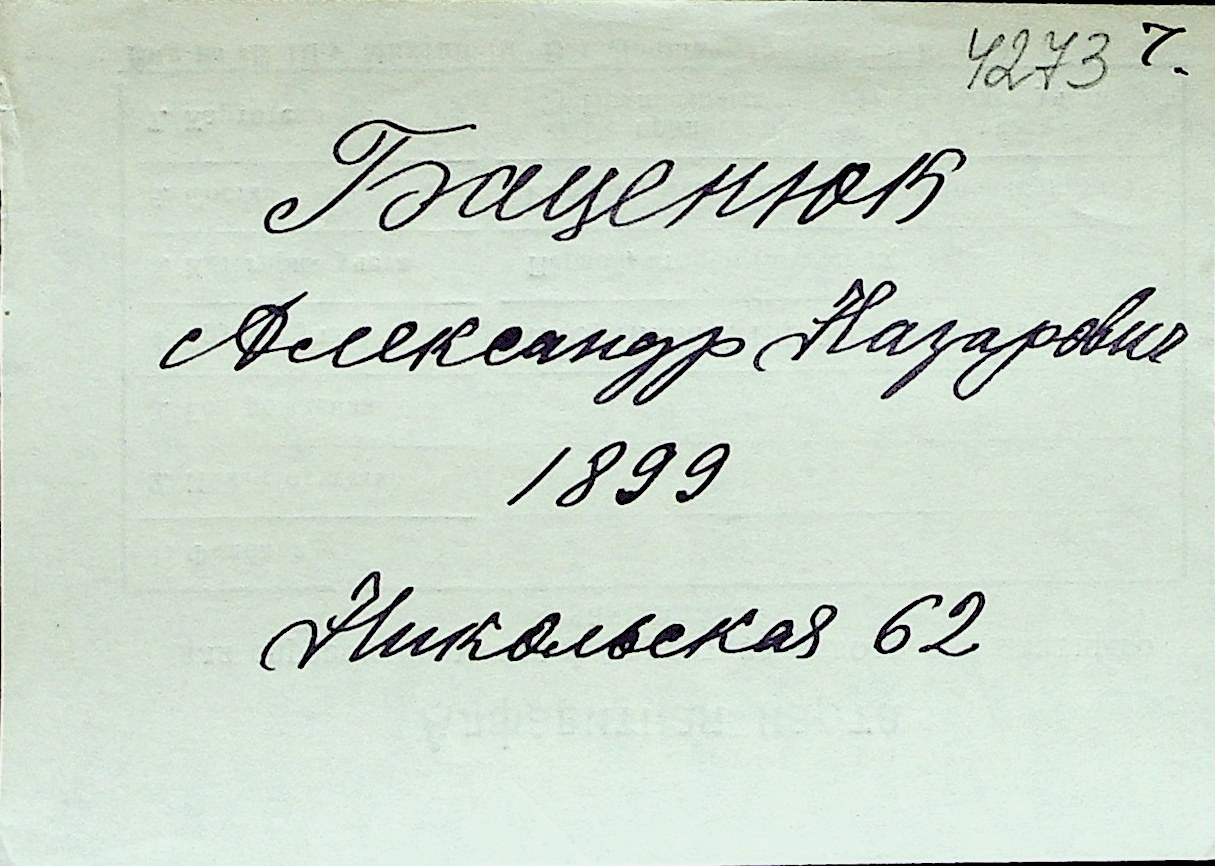 4273 ч.
Баценюк
Александр Назарович
1899
Никольская 62